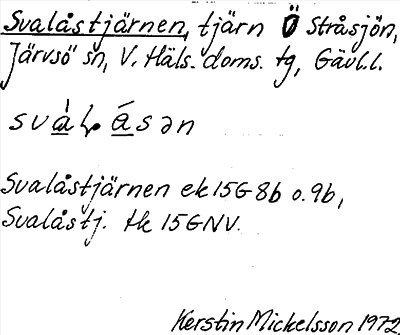 Svalåstjärnen, tjärn Ö Stråsjön,
Järvsö sn, V. Häls. doms. tg, Gävl.l.
Svalåstjärnen ek 15G8b o. 9b,
Svalåstj. tk 15GNV.
Kerstin Mickelsson 1972